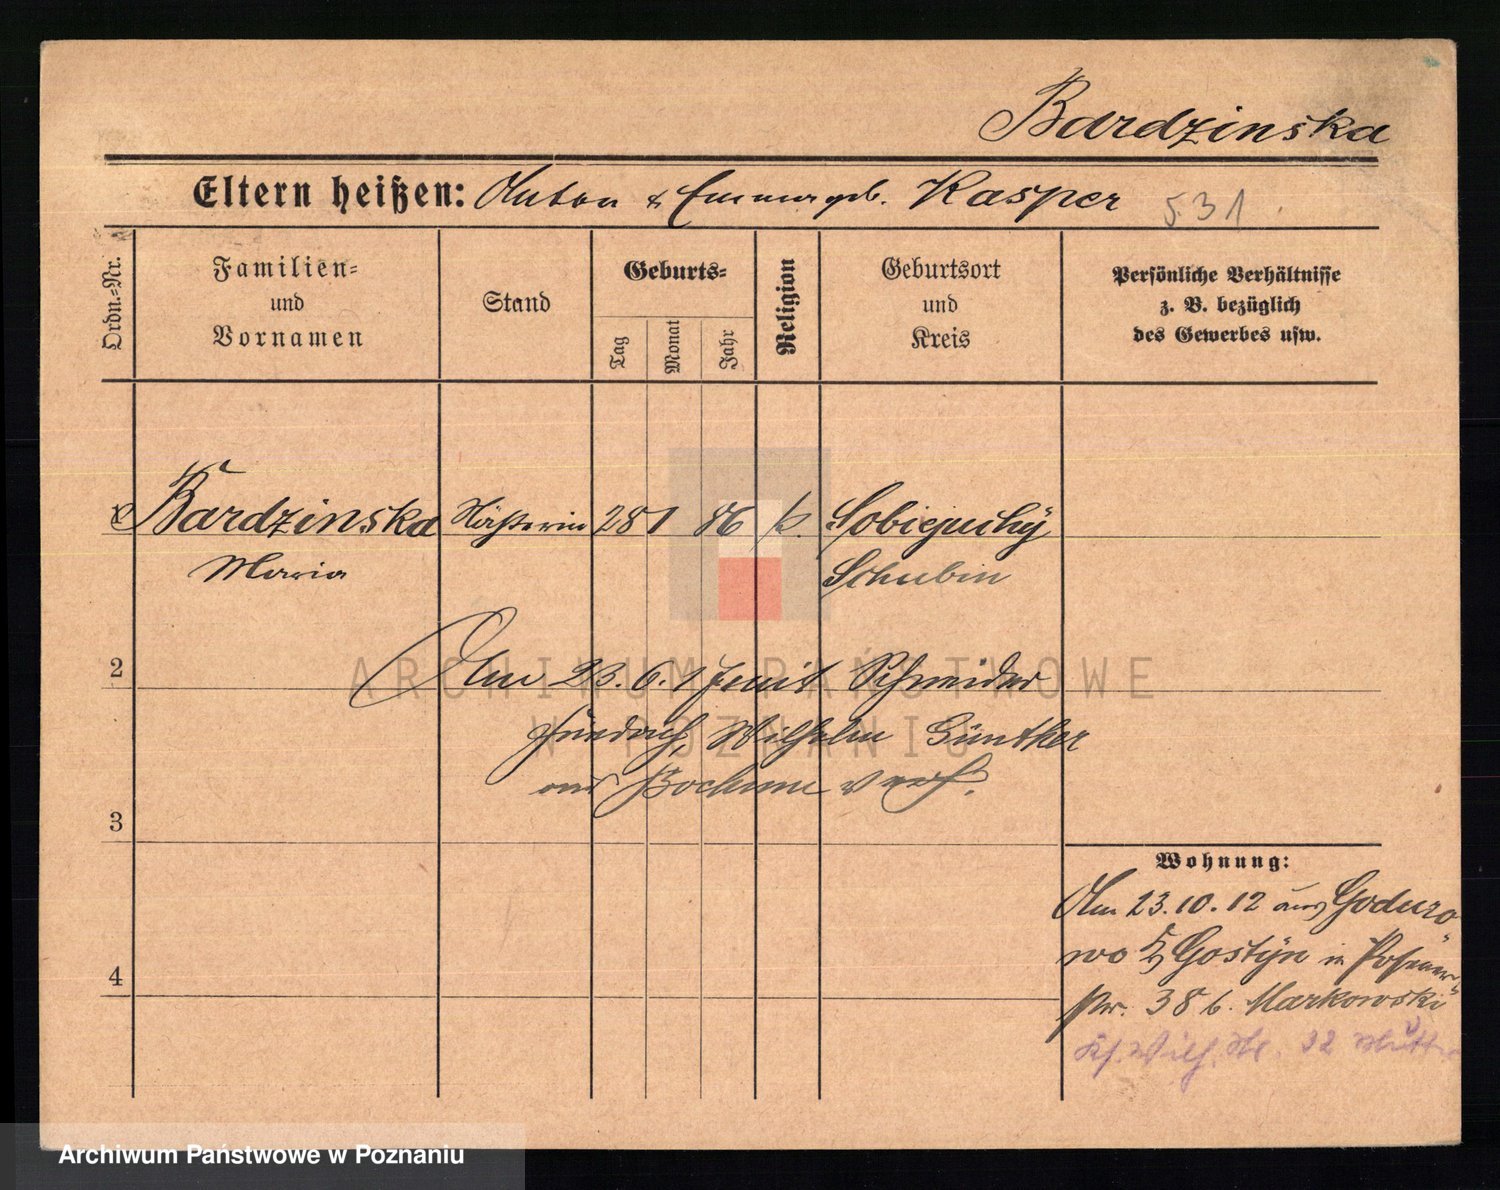 Bardzinska
Eltern heißen: Anton & Emma geb. Kasper 531
Ordn.-Nr.
Familien-
und
Vornamen
Stand
Geburts-
Tag
Monat
Jahr
Religion
Geburtsort
und
Kreis
Persönliche Verhältnisse
z. B. bezüglich
des Gewerbes usw.
Bardzinska Näherin 28 1 86 k. Sobiejuchy
Maria Schubin
2 Am 23. 6. mit Schneider
Friedrich, Wilhelm Günther
aus Bochum verh.
3
Wohnung:
Am 23.10.12 aus Goduro
wo Gostÿn in
38 b. Markowski
4 Wilh. 32 Mutter
ARCHIWUM PAŃSTWOWE
W POZNANIU
Archiwum Państwowe w Poznaniu